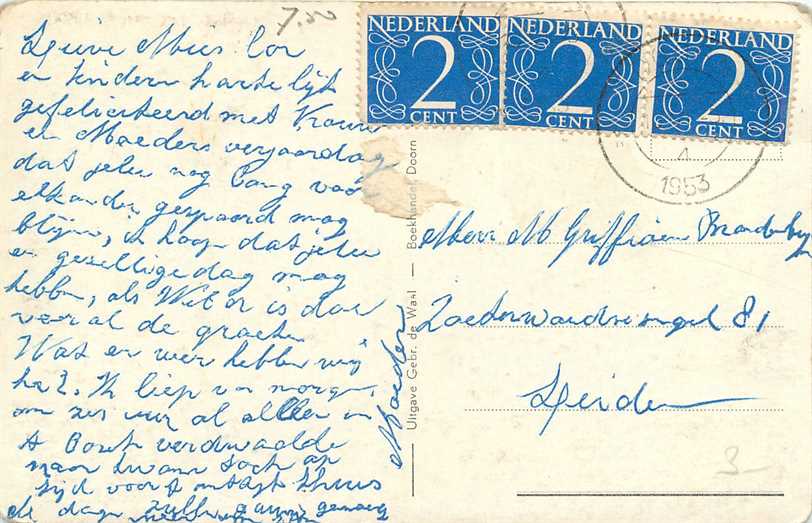 7.50
Lieve Mies Cor
en kindern hartelijk
gefeliciteerd met Vrouw
en Moeders verjaardag
dat jelui nog lang voor
elkander gespaard mag
blijven, ik hoop dat jelui
en gezellige dag mag
hebben, als Wit er is doe
vooral de groeten
Wat en weer hebben wij
he?. Ik liep van morgen
om zes uur al alleen in
't Bosch verdwaalde
maar kwam toch op
tijd voor 't ontbijt thuis
de dagen zullen gauw genoeg
Moeder
NEDERLAND
2
CENT
NEDERLAND
2
CENT
NEDERLAND
2
CENT
1953
Uitgave Gebr. de Waal — Boekhandel, Doorn
Mevr M Griffioen
Zoeterwoudsesingel 81
Leiden
3-